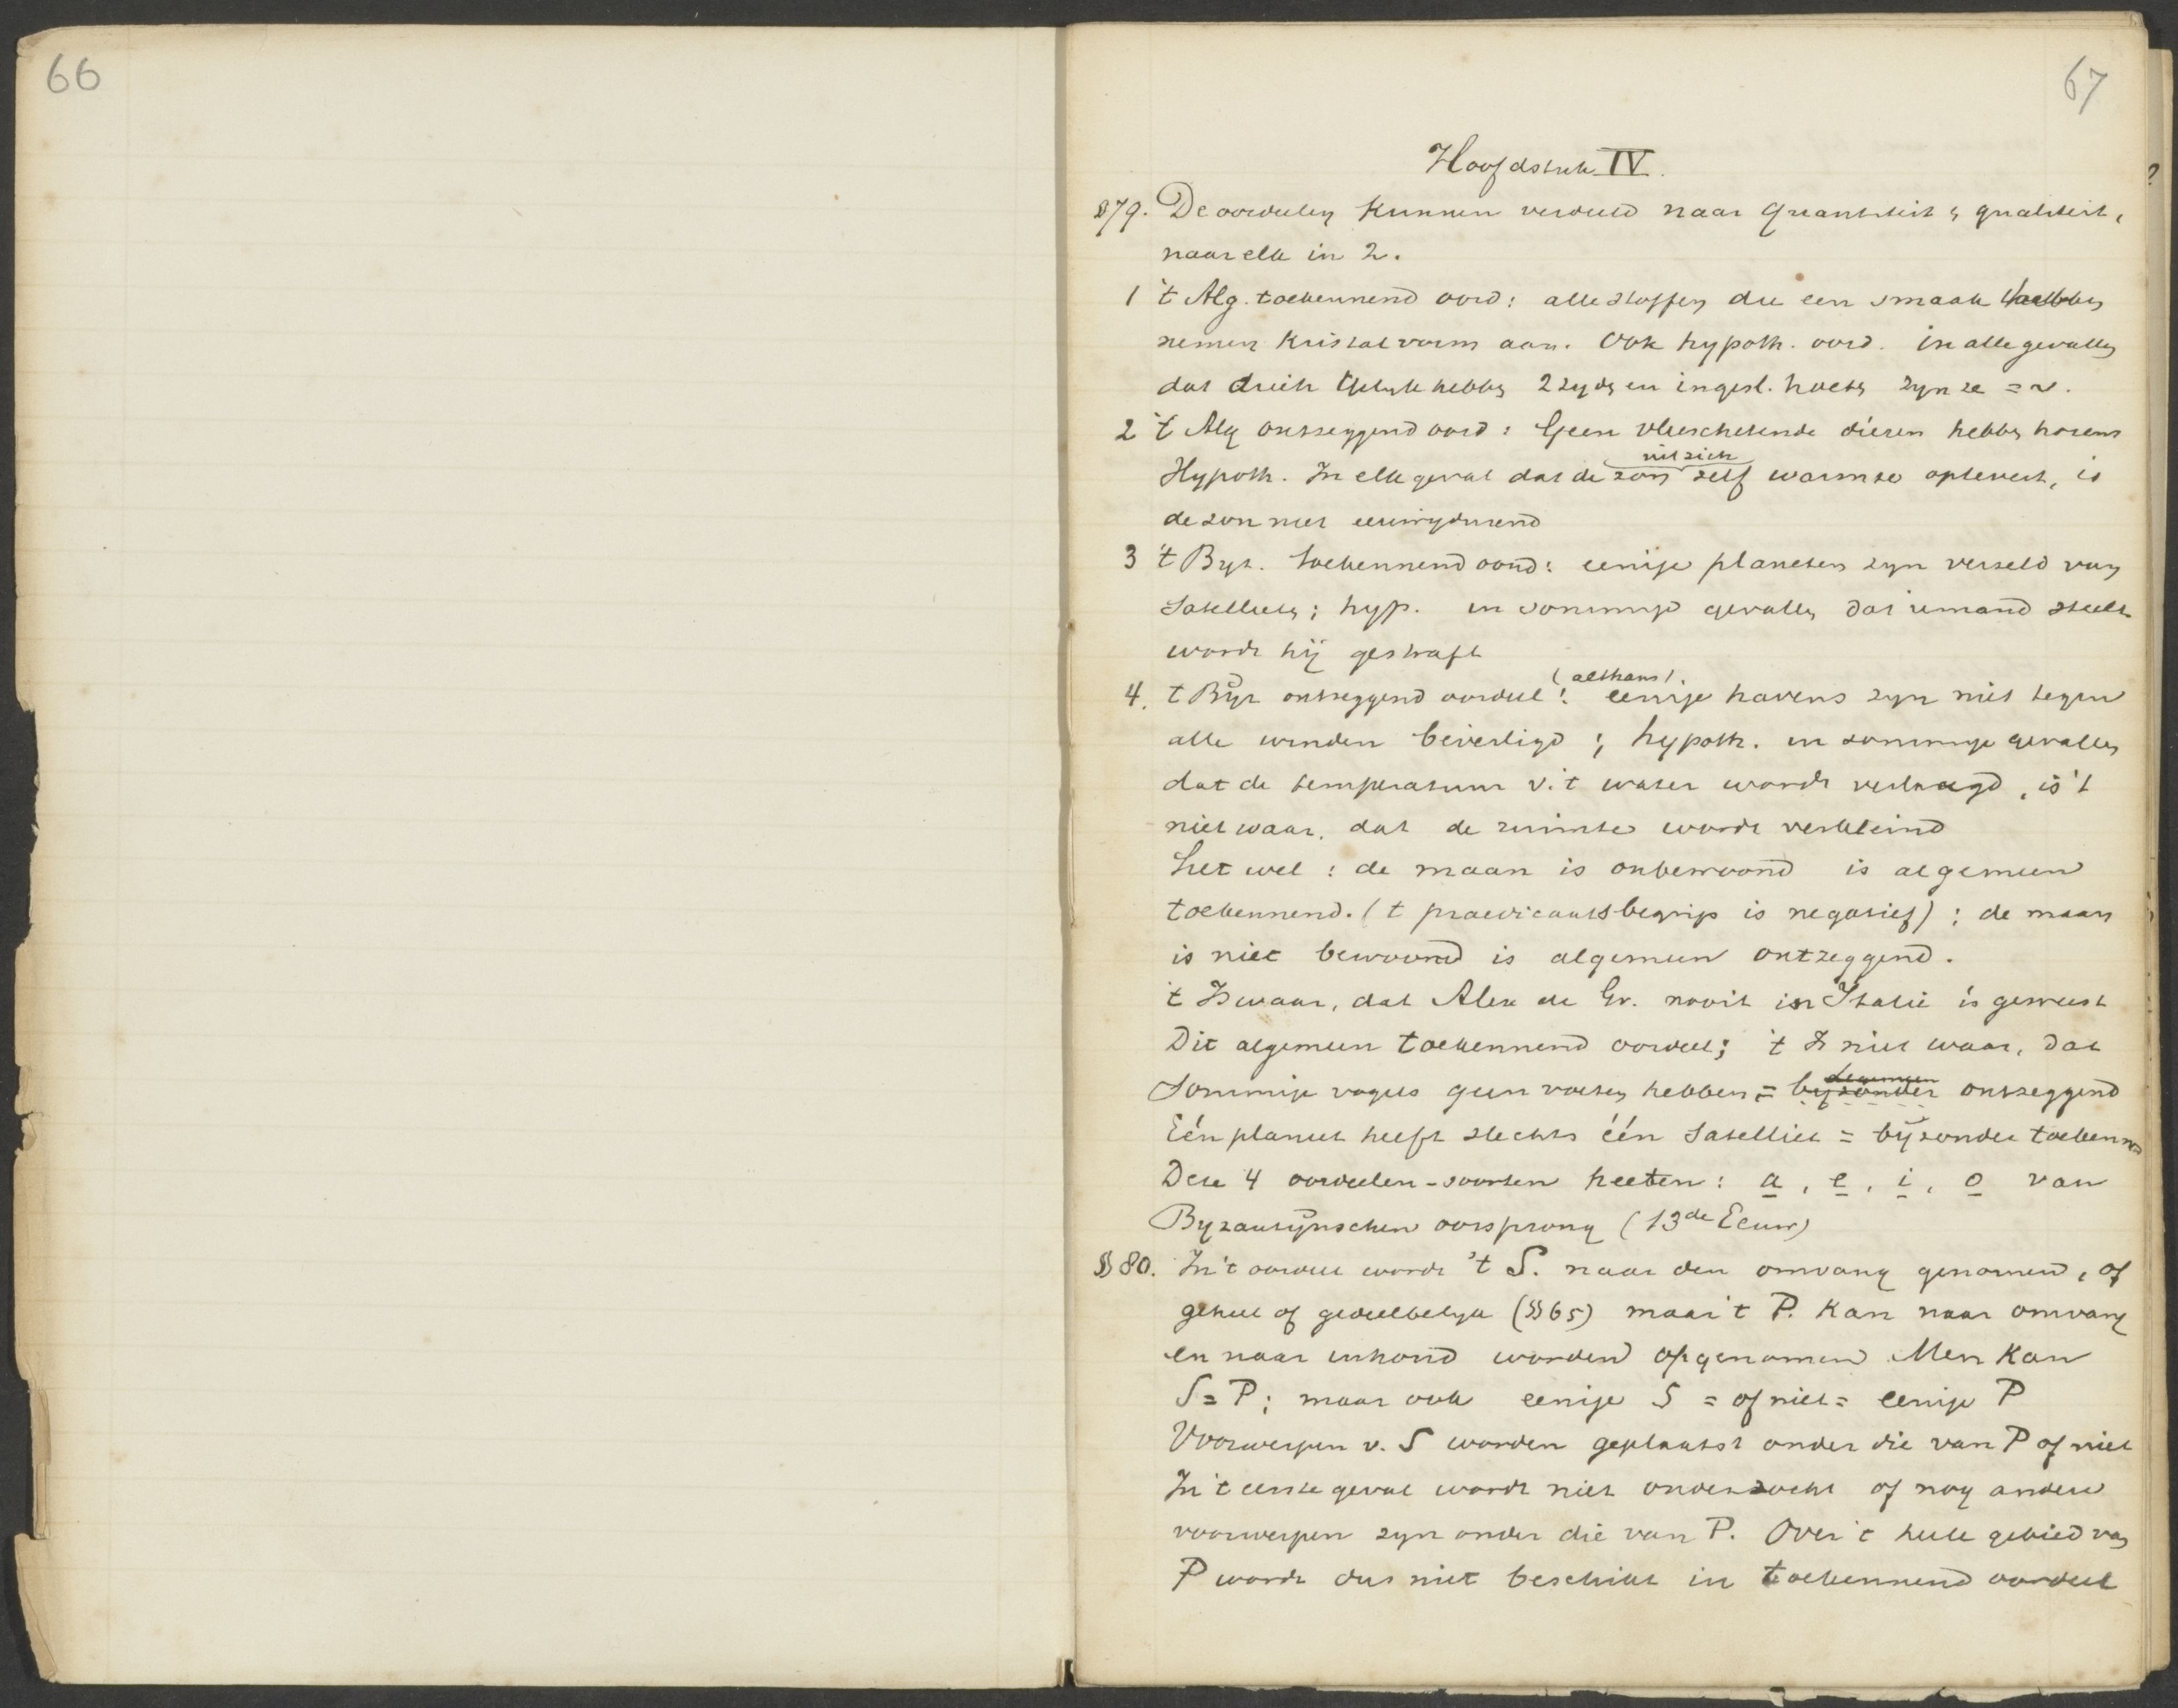 66
67
Hoofdstuk IV.
§79. De oordeelen kunnen verdeeld naar quantiteit & qualiteit,
naar elk in 2.
1 't Alg. toekennend oord: alle stoffen die een smaak hebben
nemen kristalvorm aan. Ook hypoth. oord. in alle gevallen
dat drieh. gelyk hebben 2 zyden en ingesl. hoeken zyn ze = ~.
2 't Alg ontzeggend oord: Geen vleeschetende dieren hebben horens
Hypoth. In elk geval dat de zon uit zich zelf warmte oplevert, is
de zon niet eeuwigdurend
3 't Byz. toekennend oord: eenige planeten zyn verzeld van
Satellieten; hyp. in sommige gevallen dat iemand steelt
wordt hij gestraft
4. t Byz ontzeggend oordeel: (althans) eenige havens zyn niet tegen
alle winden beveiligd; hypoth. in sommige gevallen
dat de temperatuur v. 't water wordt verlaagd, is 't
niet waar, dat de ruimte wordt verkleind
Let wel: de maan is onbewoond is algemeen
toekennend. (t praedicaatsbegrip is negatief); de maan
is niet bewoond is algemeen ontzeggend.
't Is waar, dat Alex de Gr. nooit in Italië is geweest
Dit algemeen toekennend oordeel; 't Is niet waar, dat
Sommige vogels geen voeten hebben = byzonder algemeen ontzeggend
Eén planeet heeft slechts één Satelliet = bijzonder toekennend
Deze 4 oordeelen-soorten heeten: a, e, i, o van
Byzantijnschen oorsprong (13de Eeuw)
§80. In 't oordeel wordt 't S. naar den omvang genomen, of
geheel of gedeeltelyk (§65) maar 't P. kan naar omvang
en naar inhoud worden opgenomen Men kan
S = P; maar ook eenige S = of niet = eenige P
Voorwerpen v. S worden geplaatst onder die van P of niet
In 't eerste geval wordt niet onderzocht of nog andere
voorwerpen zyn onder die van P. Over 't heele gebied van
P wordt dus niet beschikt in toekennend oordeel